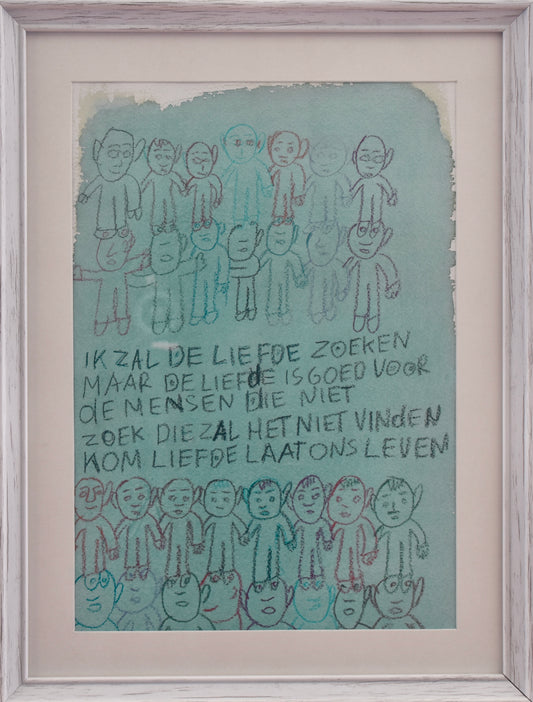 IK ZAL DE LIEFDE ZOEKEN
MAAR DE LIEFdE IS GOED VOOR
dE MENSEN DIE NIET
ZOEK DIE ZAL HET NIET VINdEN
KOM LIEFDE LAAT ONS LEVEN